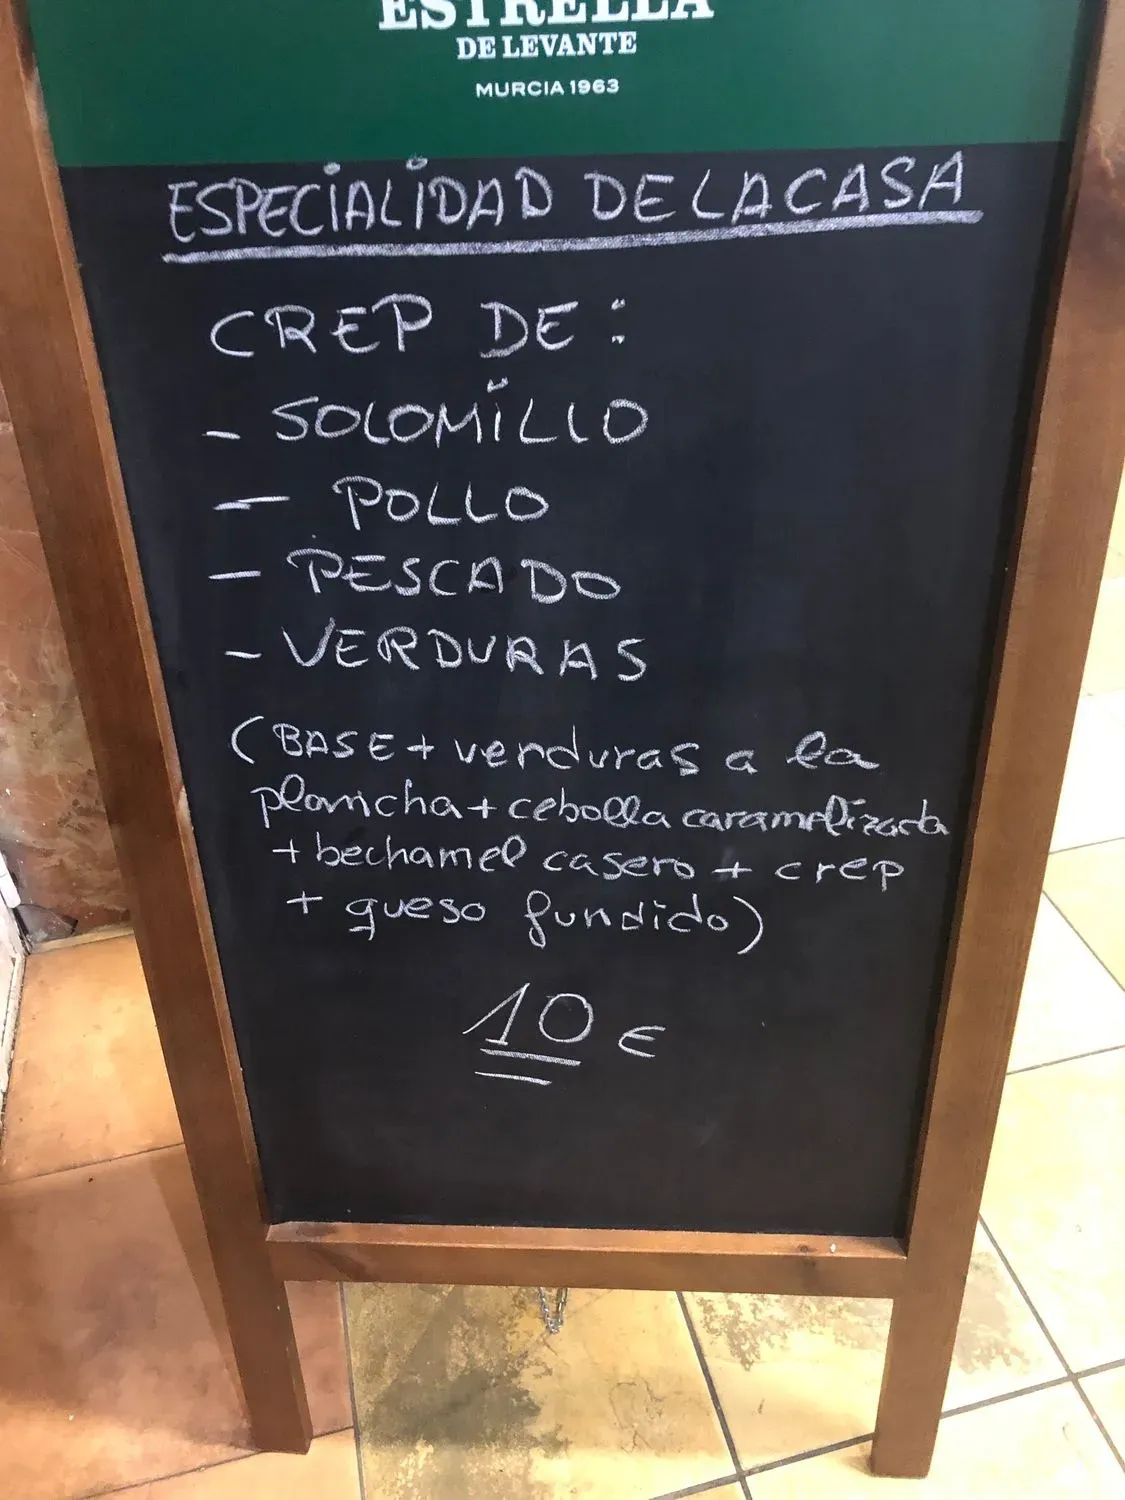 ESTRELLA
DE LEVANTE
MURCIA 1963
ESPECIALIDAD DE LA CASA
CREP DE :
- SOLOMILLO
- POLLO
- PESCADO
- VERDURAS
(BASE + verduras a la
plancha + cebolla caramelizada
+ bechamel casero + crep
+ queso fundido)
10 €